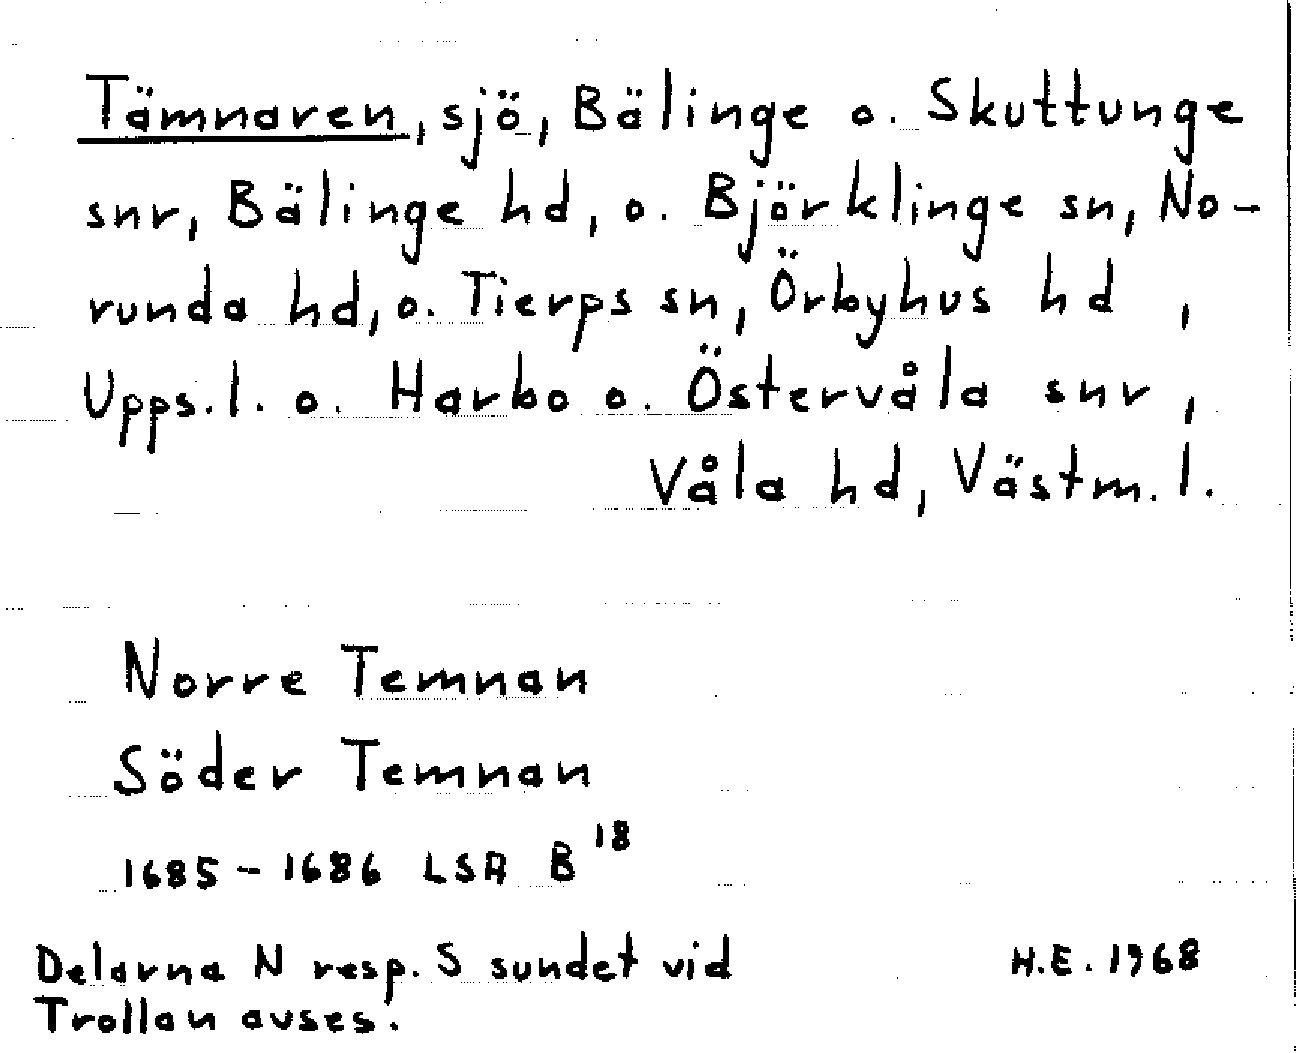 Tämnaren, sjö, Bälinge o. Skuttunge
snr, Bälinge hd, o. Björklinge sn, No-
runda hd, o. Tierps sn, Örbyhus hd ,
Upps. l. o. Harbo o. Östervåla snr,
Våla hd, Västm. l.
Norre Temnan
Söder Temnan
1685 - 1686 LSA B 18
Delarna N resp. S sundet vid H.E. 1968
Trollan avses.